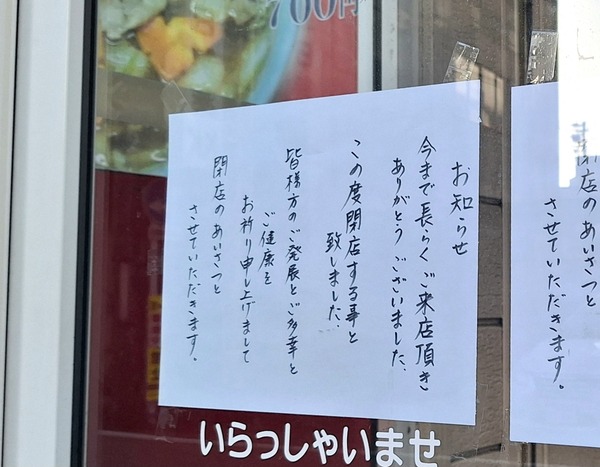 700円
お知らせ
今まで長らくご来店頂き
ありがとうございました、
この度閉店する事と
致しました、
皆様方のご発展とご多幸と
ご健康を
お祈り申し上げまして
閉店のあいさつと
させていただきます。
閉店のあいさつと
させていただきます。
いらっしゃいませ